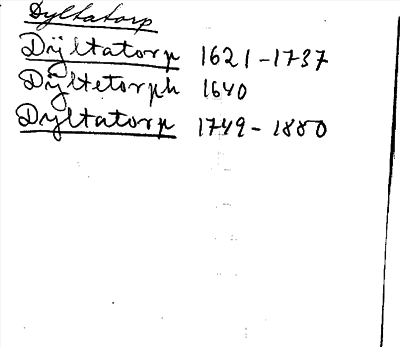 Dyltatorp
Dÿltatorp 1621-1737
Dÿltetorph 1640
Dyltatorp 1749-1880